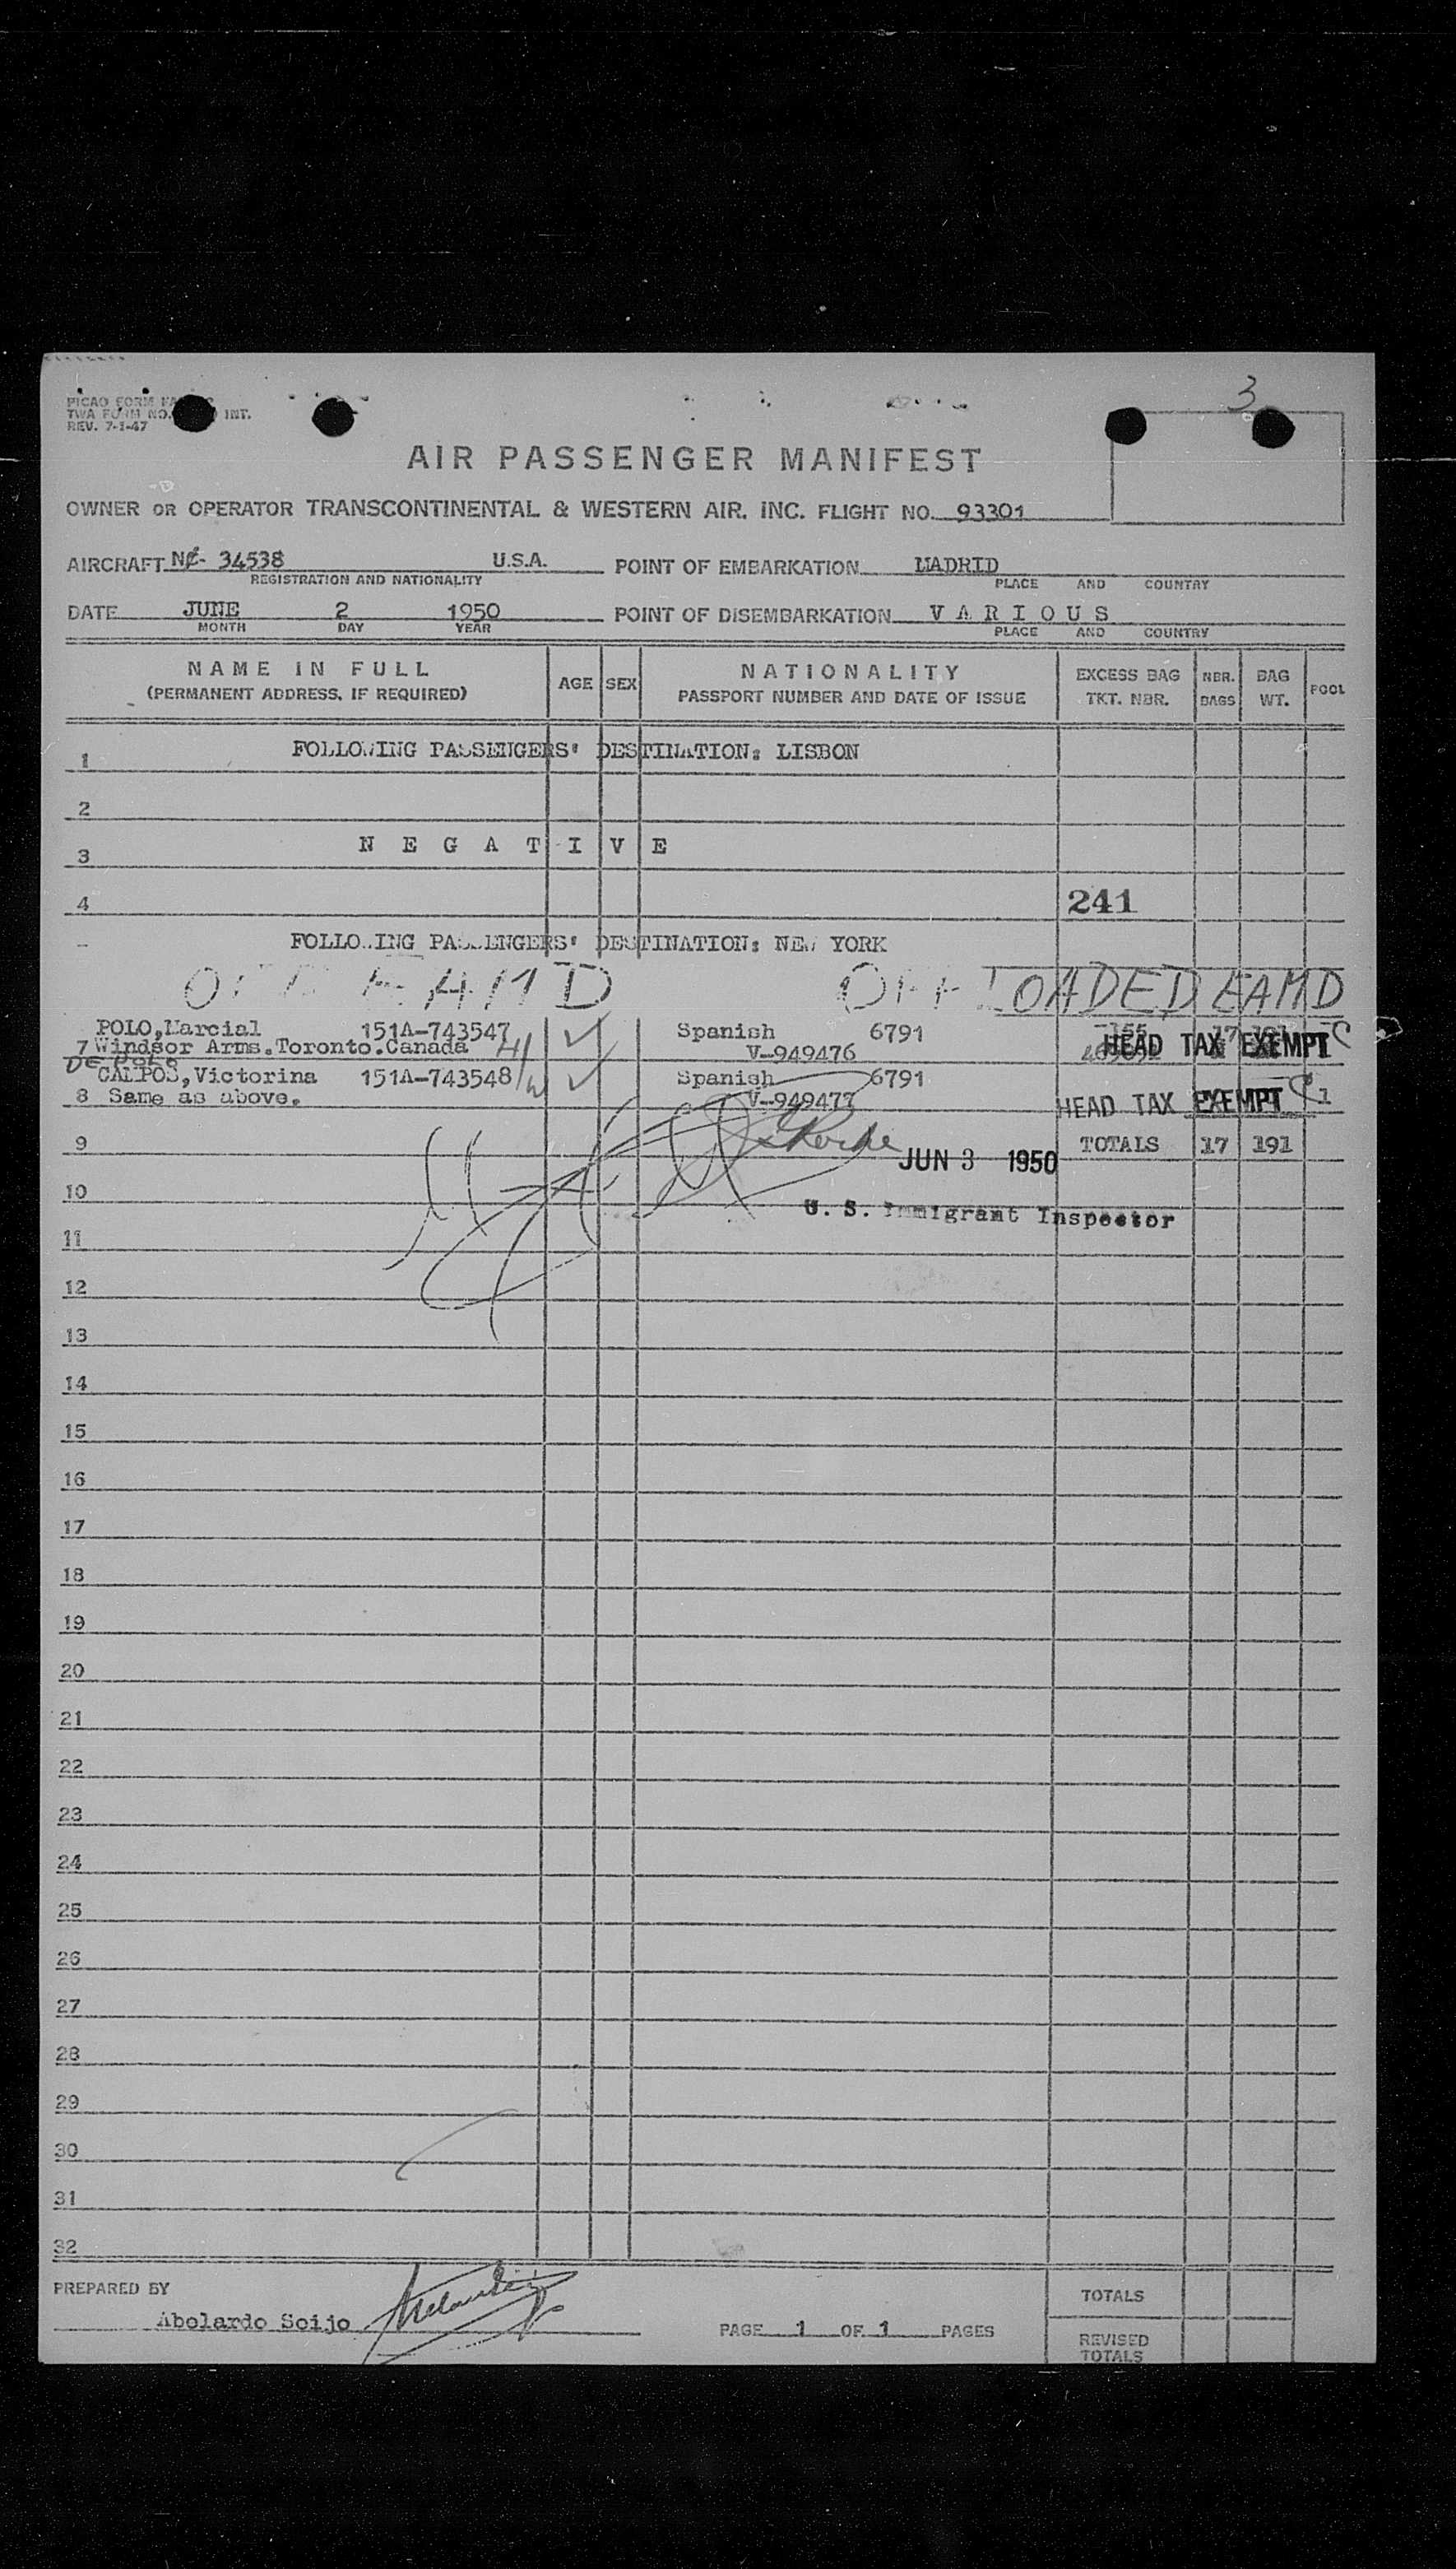 3
PICAO FORM
TWA FORM NO. INT.
REV. 7-1-47
AIR PASSENGER MANIFEST
OWNER OR OPERATOR TRANSCONTINENTAL & WESTERN AIR, INC. FLIGHT NO. 93301
AIRCRAFT NC- 34538 U.S.A. POINT OF EMBARKATION MADRID
REGISTRATION AND NATIONALITY PLACE AND COUNTRY
DATE JUNE 2 1950 POINT OF DISEMBARKATION V A R I O U S
MONTH DAY YEAR PLACE AND COUNTRY
NAME IN FULL AGE SEX NATIONALITY EXCESS BAG NBR. BAG POOL
(PERMANENT ADDRESS, IF REQUIRED) PASSPORT NUMBER AND DATE OF ISSUE TKT. NBR. BAGS WT.
1 FOLLOWING PASSENGERS' DESTINATION: LISBON
2
3 N E G A T I V E
4 241
FOLLOWING PASSENGERS' DESTINATION: NEW YORK
OFF EAMD OFFLOADED EAMD
POLO,Marcial 151A-743547 Spanish 6791
7 Windsor Arms.Toronto.Canada V-949476 HEAD TAX EXEMPT
DE POLO
CAMPOS,Victorina 151A-743548 Spanish 6791
8 Same as above. V-949477 HEAD TAX EXEMPT 1
9 JUN 3 1950 TOTALS 17 191
10 U. S. Immigrant Inspector
11
12
13
14
15
16
17
18
19
20
21
22
23
24
25
26
27
28
29
30
31
32
PREPARED BY TOTALS
Abelardo Seijo PAGE 1 OF 1 PAGES
REVISED
TOTALS